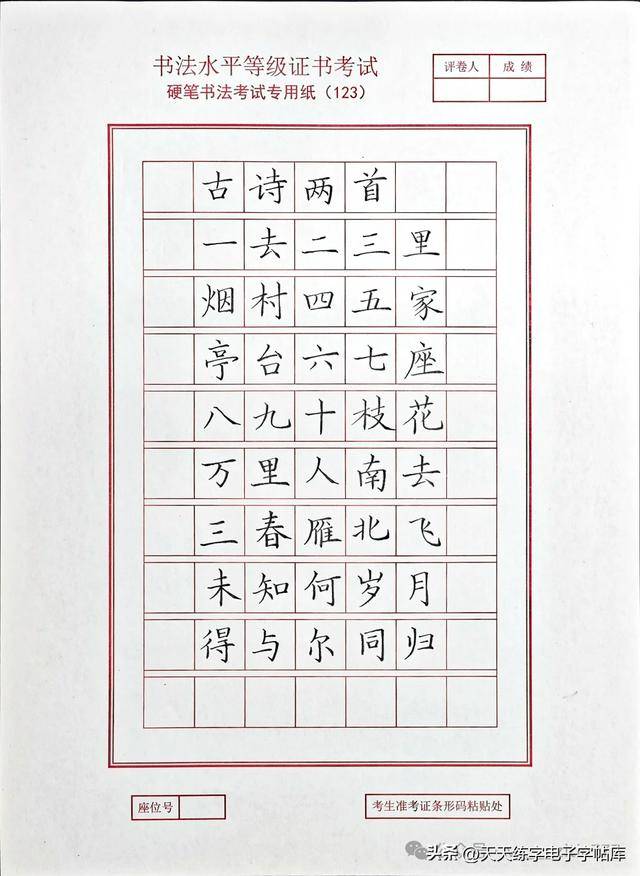 书法水平等级证书考试
硬笔书法考试专用纸（123）
评卷人 成绩
古诗两首
一去二三里
烟村四五家
亭台六七座
八九十枝花
万里人南去
三春雁北飞
未知何岁月
得与尔同归
座位号
考生准考证条形码粘贴处
头条 @天天练字电子字帖库